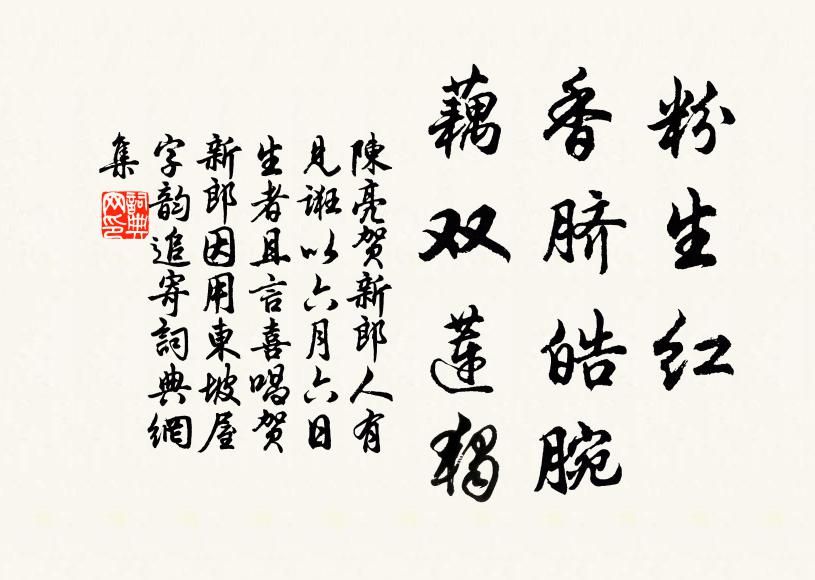 粉生红
香脐皓腕
藕双莲獨
陳亮贺新郎人有
見诳以六月六日
生者且言喜唱贺
新郎因用東坡屋
字韵追寄詞典網
集
詞典网印